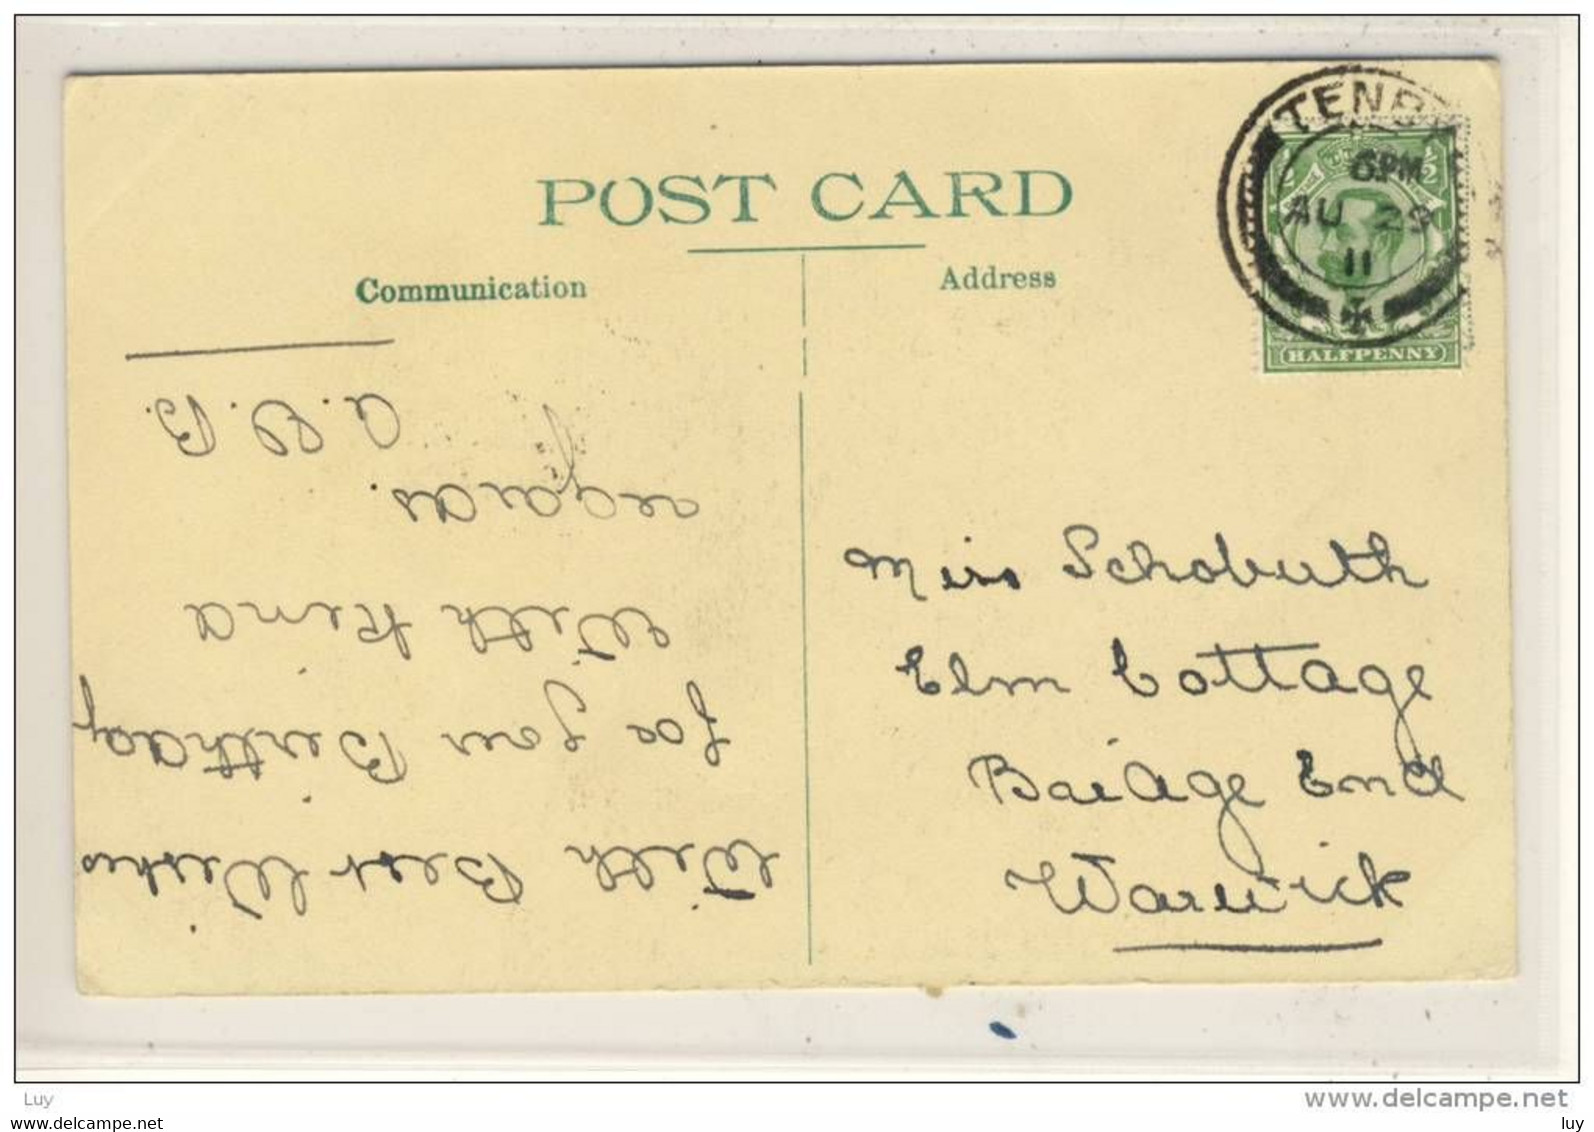 POST CARD
Communication
Address
TENB
6PM
AU 29
11
HALFPENNY
With Best Wishes
for your Birthday
With Kind
regards.
a. V. B.
Miss Schobuth
Elm Cottage
Bridge End
Warwick
Luy
delcampe.net
www.delcampe.net
luy